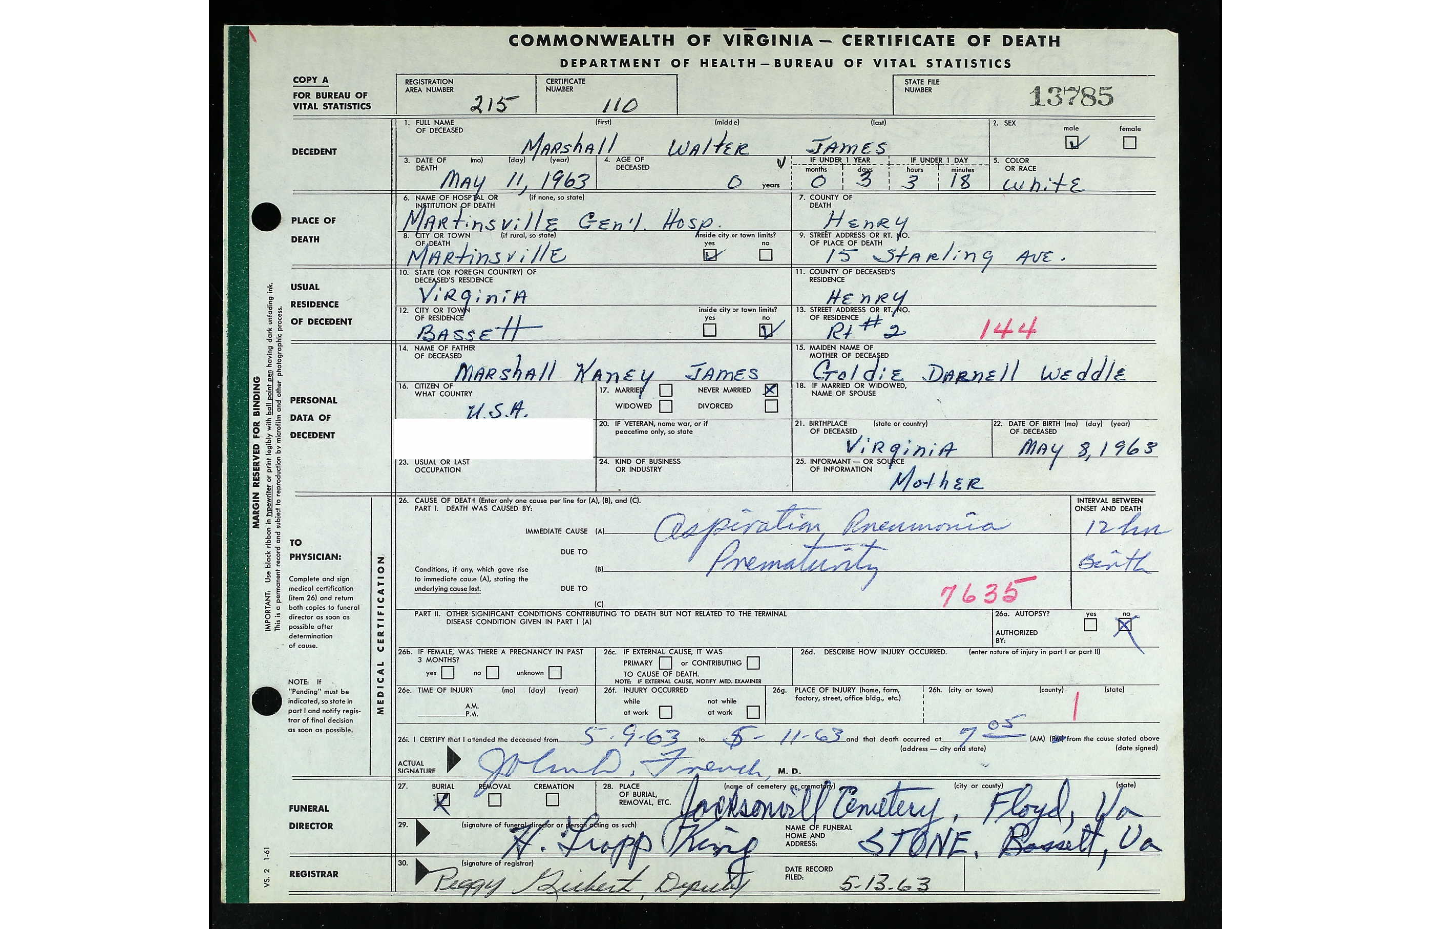 COMMONWEALTH OF VIRGINIA — CERTIFICATE OF DEATH
DEPARTMENT OF HEALTH — BUREAU OF VITAL STATISTICS
COPY A
FOR BUREAU OF VITAL STATISTICS
REGISTRATION AREA NUMBER 215
CERTIFICATE NUMBER 110
STATE FILE NUMBER 13785
DECEDENT
1. FULL NAME OF DECEASED (first) (middle) (last) Marshall Walter James
2. SEX male female
3. DATE OF DEATH (mo) (day) (year) May 11, 1963
4. AGE OF DECEASED 0 years
IF UNDER 1 YEAR months 0 days 3
IF UNDER 1 DAY hours 3 minutes 18
5. COLOR OR RACE White
PLACE OF DEATH
6. NAME OF HOSPITAL OR INSTITUTION OF DEATH (if none, so state) Martinsville Gen'l. Hosp.
7. COUNTY OF DEATH Henry
8. CITY OR TOWN OF DEATH (if rural, so state) Martinsville
inside city or town limits? yes no
9. STREET ADDRESS OR RT. NO. OF PLACE OF DEATH 15 Starling Ave.
USUAL RESIDENCE OF DECEDENT
10. STATE (OR FOREGN COUNTRY) OF DECEASED'S RESIDENCE Virginia
11. COUNTY OF DECEASED'S RESIDENCE Henry
12. CITY OR TOWN OF RESIDENCE Bassett
inside city or town limits? yes no
13. STREET ADDRESS OR RT. NO. OF RESIDENCE Rt #2 144
PERSONAL DATA OF DECEDENT
14. NAME OF FATHER OF DECEASED Marshall Kaney James
15. MAIDEN NAME OF MOTHER OF DECEASED Goldie Darnell Weddle
16. CITIZEN OF WHAT COUNTRY U.S.A.
17. MARRIED NEVER MARRIED
WIDOWED DIVORCED
18. IF MARRIED OR WIDOWED, NAME OF SPOUSE
20. IF VETERAN, name war, or if peacetime only, so state
21. BIRTHPLACE OF DECEASED (state or country) Virginia
22. DATE OF BIRTH OF DECEASED (mo) (day) (year) May 8, 1963
23. USUAL OR LAST OCCUPATION
24. KIND OF BUSINESS OR INDUSTRY
25. INFORMANT — OR SOURCE OF INFORMATION Mother
MARGIN RESERVED FOR BINDING
IMPORTANT: Use black ribbon in typewriter or print legibly with ball point pen having dark unfading ink.
This is a permanent record and subject to reproduction by microfilm and other photographic process.
MEDICAL CERTIFICATION
TO PHYSICIAN:
Complete and sign
medical certification
(item 26) and return
both copies to funeral
director as soon as
possible after
determination
of cause.
NOTE: IF
"Pending" must be
indicated, so state in
part I and notify regis-
trar of final decision
as soon as possible.
26. CAUSE OF DEATH (Enter only one cause per line for (A), (B), and (C).
INTERVAL BETWEEN ONSET AND DEATH
PART I. DEATH WAS CAUSED BY:
IMMEDIATE CAUSE (A) Aspiration Pneumonia 12 hrs
DUE TO
Conditions, if any, which gave rise to immediate cause (A), stating the underlying cause last.
(B) Prematurity Birth
DUE TO
(C) 7635
PART II. OTHER SIGNIFICANT CONDITIONS CONTRIBUTING TO DEATH BUT NOT RELATED TO THE TERMINAL DISEASE CONDITION GIVEN IN PART I (A)
26a. AUTOPSY? yes no
AUTHORIZED BY:
26b. IF FEMALE, WAS THERE A PREGNANCY IN PAST 3 MONTHS?
yes no unknown
26c. IF EXTERNAL CAUSE, IT WAS
PRIMARY or CONTRIBUTING
TO CAUSE OF DEATH.
NOTE: IF EXTERNAL CAUSE, NOTIFY MED. EXAMINER
26d. DESCRIBE HOW INJURY OCCURRED. (enter nature of injury in part I or part II)
26e. TIME OF INJURY (mo) (day) (year)
A.M.
P.M.
26f. INJURY OCCURRED
while at work not while at work
26g. PLACE OF INJURY (home, farm, factory, street, office bldg., etc.)
26h. (city or town) (county) (state)
26i. I CERTIFY that I attended the deceased from 5-9-63 to 5-11-63 and that death occurred at 7 05 (AM) from the cause stated above
(address — city and state) (date signed)
ACTUAL SIGNATURE John D. French, M. D.
FUNERAL DIRECTOR
27. BURIAL REMOVAL CREMATION
28. PLACE OF BURIAL, REMOVAL, ETC. (name of cemetery or crematory) (city or county) (state)
Jacksonvill Cemetery, Floyd, Va
29. (signature of funeral director or person acting as such) H. Trapp King
NAME OF FUNERAL HOME AND ADDRESS: STONE, Bassett, Va
REGISTRAR
30. (signature of registrar) Peggy Gilbert, Deputy
DATE RECORD FILED: 5-13-63
VS. 2 1-61